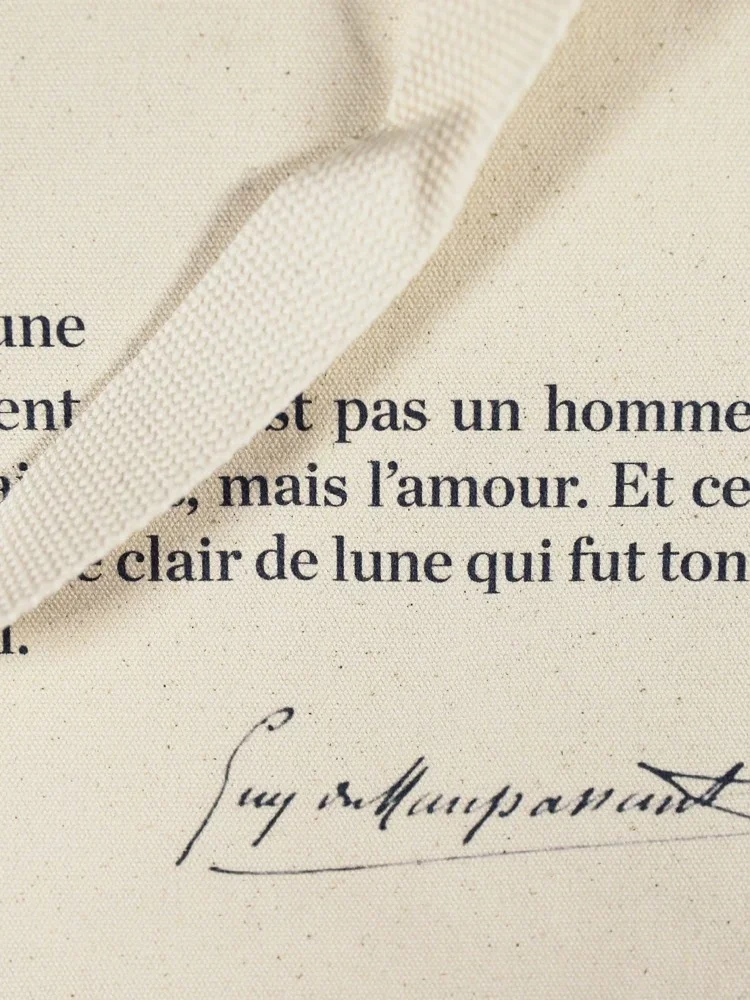 une
ent st pas un homme
, mais l’amour. Et ce
clair de lune qui fut ton
Guy de Maupassant